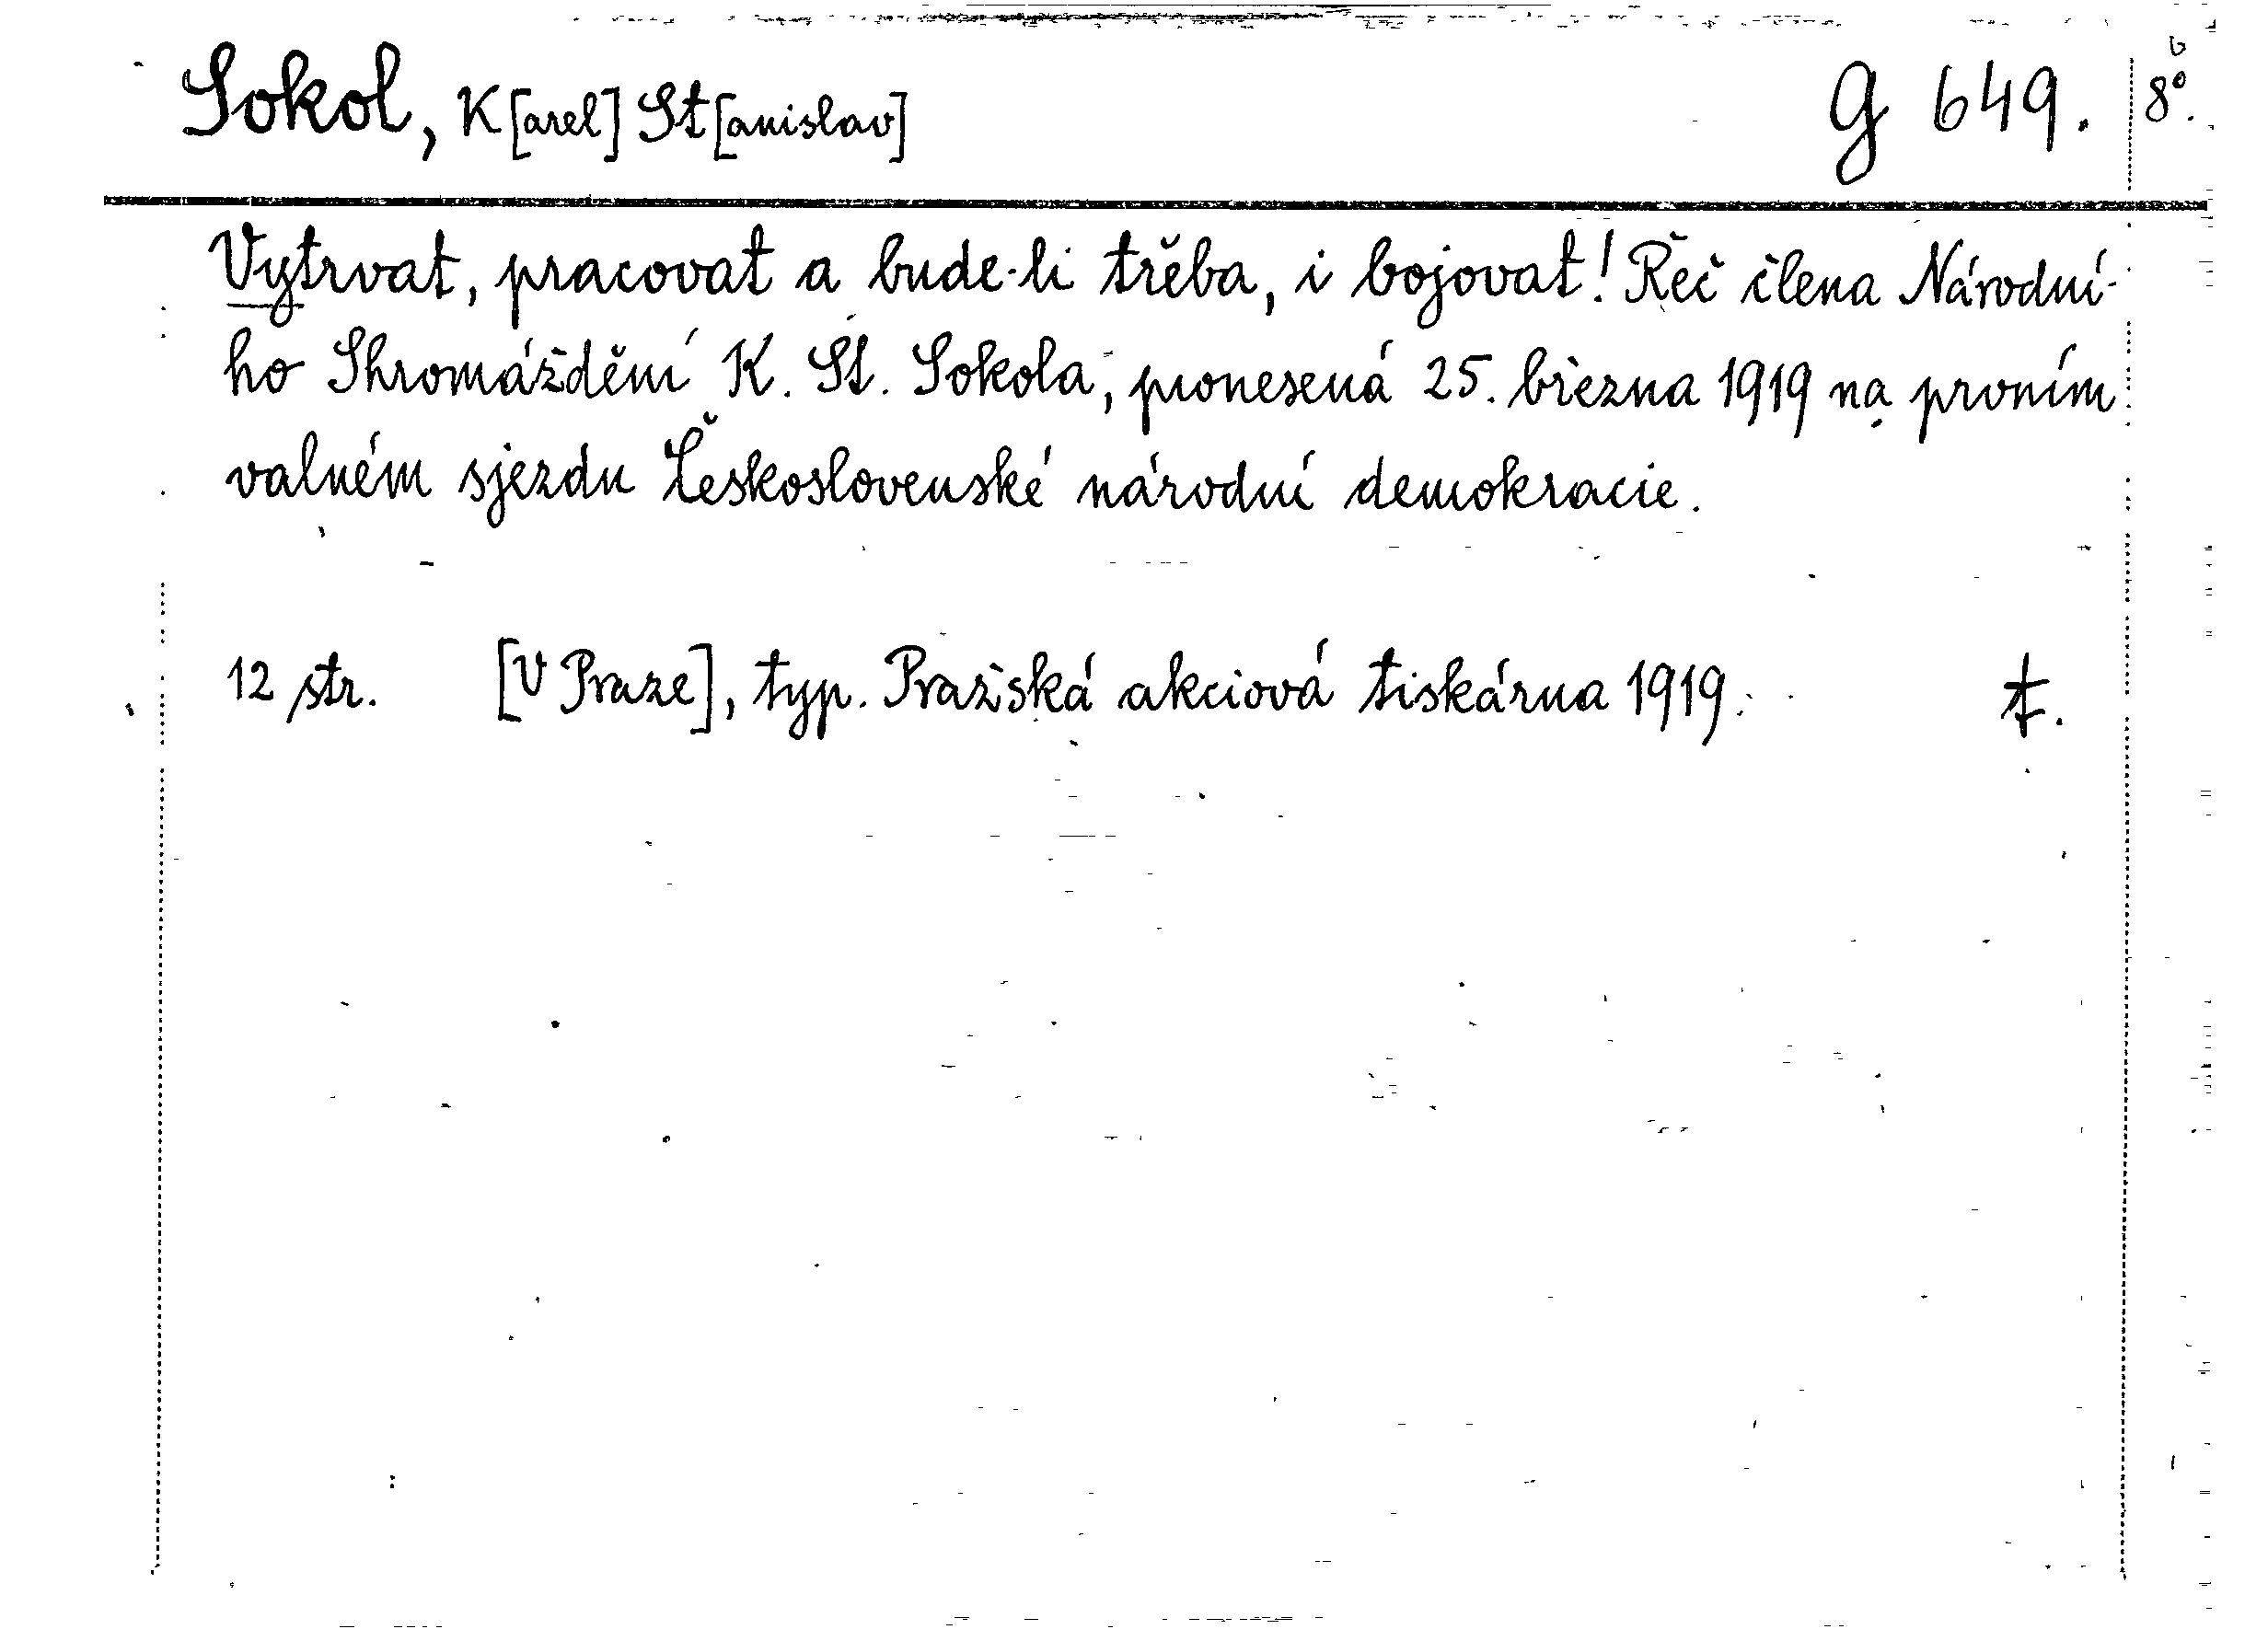 Sokol, K[arel] St[anislav] G 649. 8°.
6
Vytrvat, pracovat a bude-li třeba, i bojovat! Řeč člena Národní-
ho Shromáždění K. St. Sokola, pronesená 25. března 1919 na prvním
valném sjezdu Československé národní demokracie.
12 str. [V Praze], typ. Pražská akciová tiskárna 1919. t.